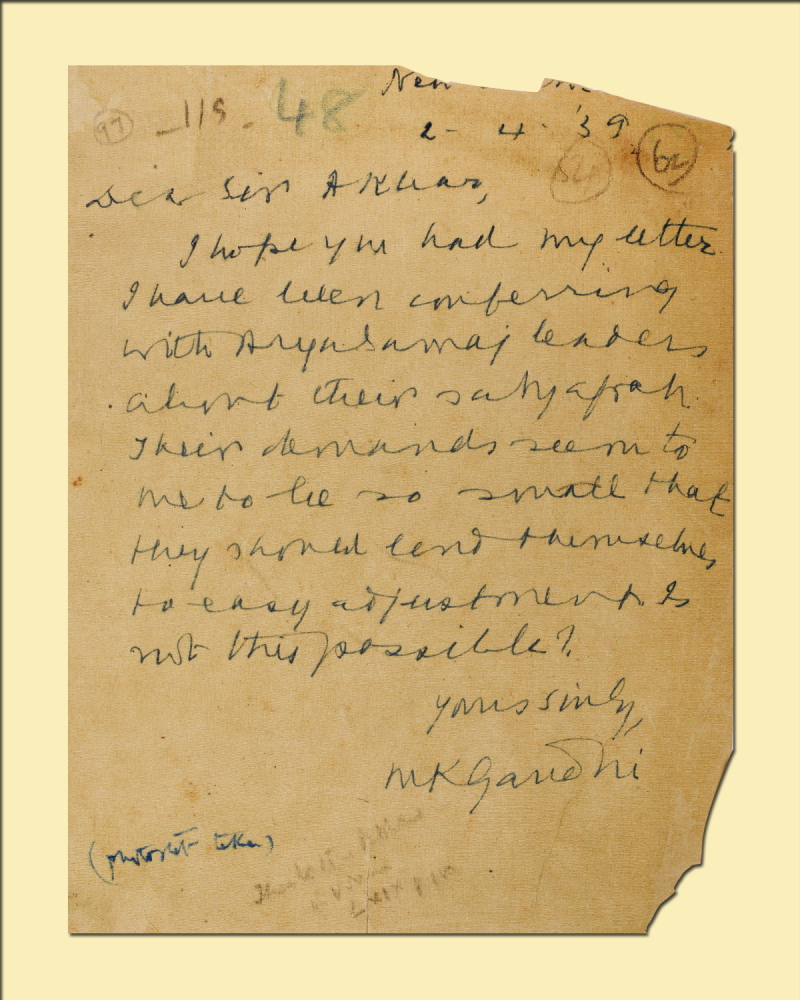 New
_115.
48
97
2-4-'39
54
62
Dear Sir Akbar,
I hope you had my letter.
I have been conferring
with Arya Samaj leaders
about their satyagrah.
Their demands seem to
me to be so small that
they should lend themselves
to easy adjustment. Is
not this possible?
Yours sinly,
MKGandhi
(photostat taken)